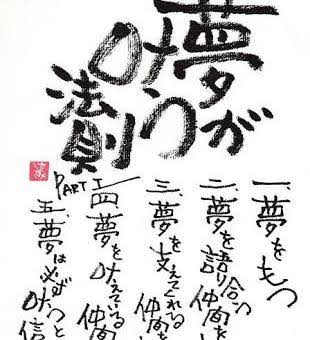 夢が
叶う
法則
PART I
一、夢をもつ
二、夢を語り合う仲間を
三、夢を支えてくれる仲間を
四、夢を叶えている仲間
五、夢は必ず叶うと信